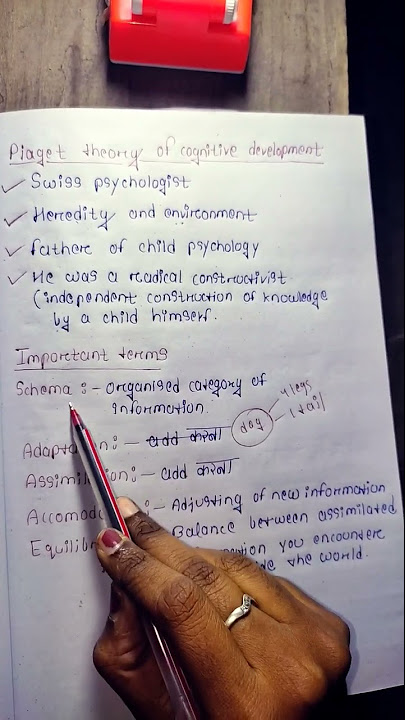 Piaget theory of cognitive development
Swiss psychologist
Heredity and environment
fathere of child psychology
He was a readical constructivist
(independent construction of knowledge
by a child himself.
Important terms
Schema :- organised category of
information.
dog
4 legs
1 tail
:- add करना
:- add करना
:- Adjusting of new information
Balance between assimilated
you encountere
the world.